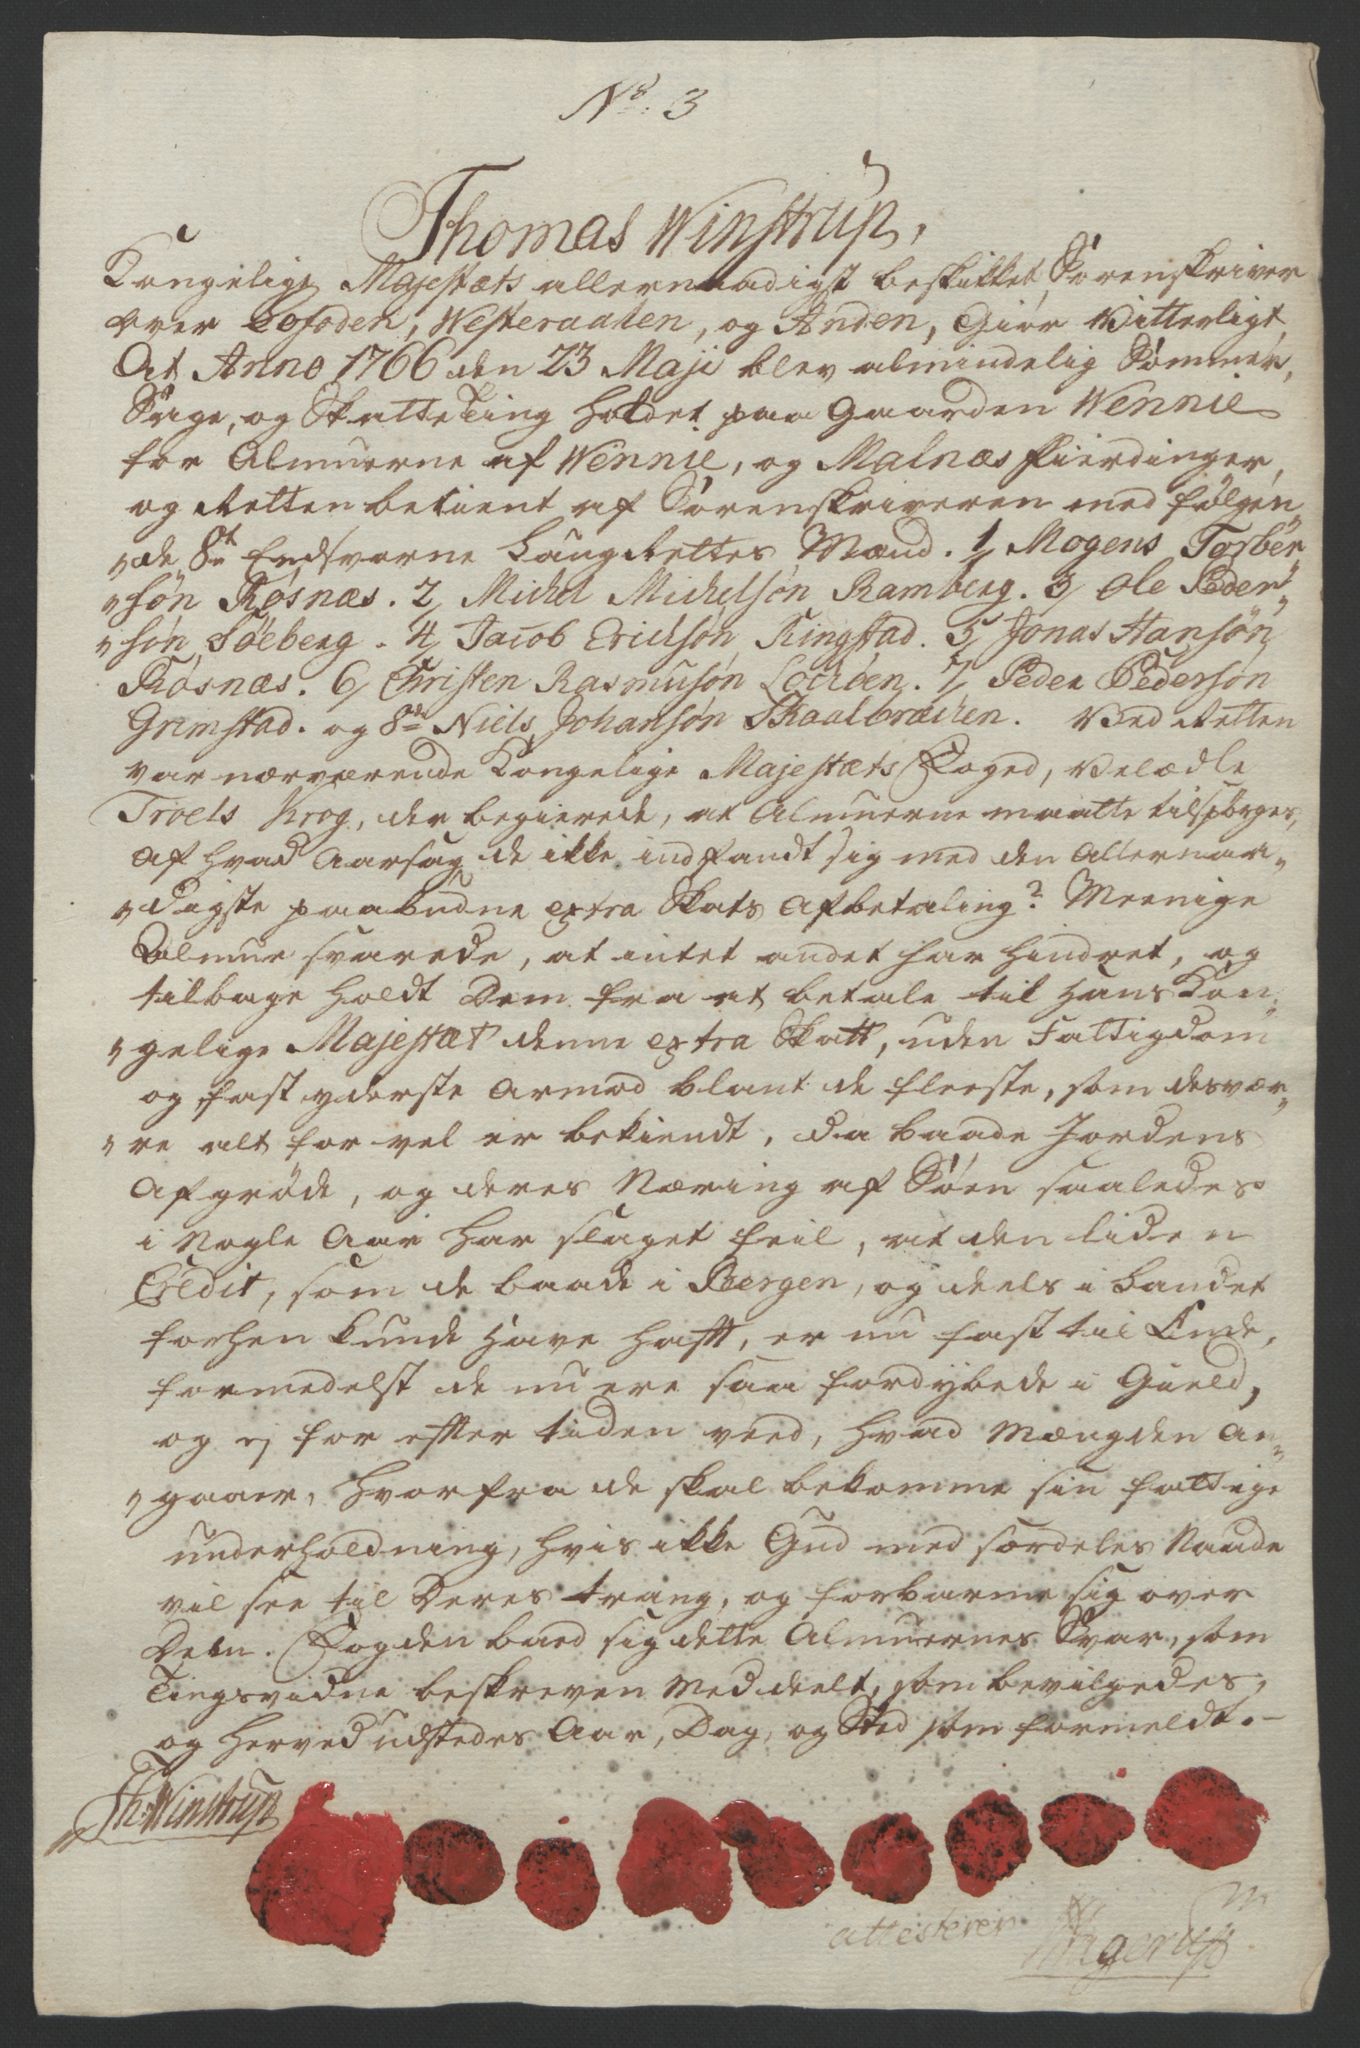 No. 3
Thomas Winstrup,
Kongelige Majestæts allernaadigst beskikket Sorenskriver
over Lofoden, Westeraalen, og Anden, Giør Vitterligt,
At Anno 1766 den 23 Maji blev almindelig Sommer,
Sage, og SkatteTing holdet paa Gaarden Wennie
for Almuerne af Wennie, og Malnæs Fierdinger,
og Retten betient af Sorenskriveren med følgen„
„de 8te Eedsvorne LaugRettes Mænd. 1, Mogens Torber„
„søn Røsnæs. 2, Michel Michelsøn Ramberg. 3, Ole Peder„
„søn Søeberg. 4, Jacob Ericksøn Ringstad. 5, Jonas Hansøn
Røsnæs. 6, Christen Rasmusøn 7, Peder Pedersøn
Grimstad. og 8de Niels Johansøn Skaalbrækken. Ved Retten
var nærværende Kongelige Majestæts Foged, Velædle
Troels Krog, der begierede, at Almuerne maatte tilspørges,
af hvad Aarsag de ikke indfandt sig med den Allernaa„
„digste paabudne extra Skats Afbetaling? Meenige
Almue svarede, at intet andet har hindret, og
tilbage holdt Dem fra at betale til Hans Kon„
„gelige Majestæt denne extra Skatt, uden Fattigdom
og fast yderste Armod blant de fleeste, som desvær„
„re alt for vel er bekiendt, da baade Jordens
Afgrøde, og deres Næring af Søen saaledes
i Nogle Aar har slaget feil, at den liden
Credit, som de baade i Bergen, og deels i Landet
forhen kunde have hafft, er nu fast til Ende,
formedelst de nu ere saa fordybede i Gield,
og ej for effter tiden veed, hvad Mængden an„
„gaaer, hvorfra de skal bekomme sin fattige
underholdning, hvis ikke Gud med særdeles Naade
vil see til Deres trang, og forbarme sig over
Dem. Fogden bad sig dette Almuernes Svar, som
Tingsvidne beskreven Meddeelt, som bevilgedes,
og herved udstedes Aar, Dag, og Sted som formeldt.–
Th: Winstrup
attesterer